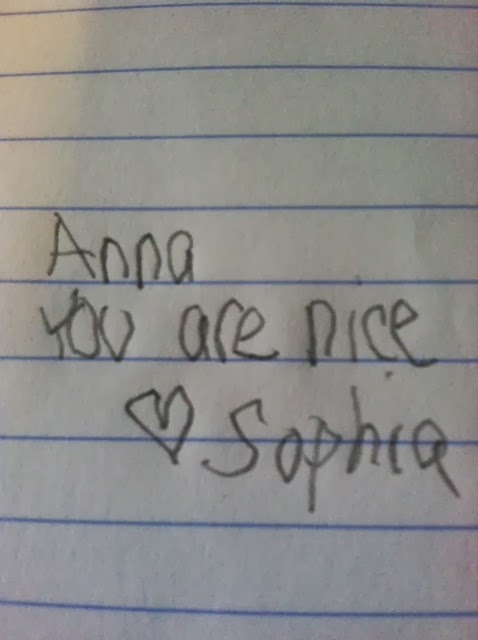 Anna
You are nice
♡ Sophia